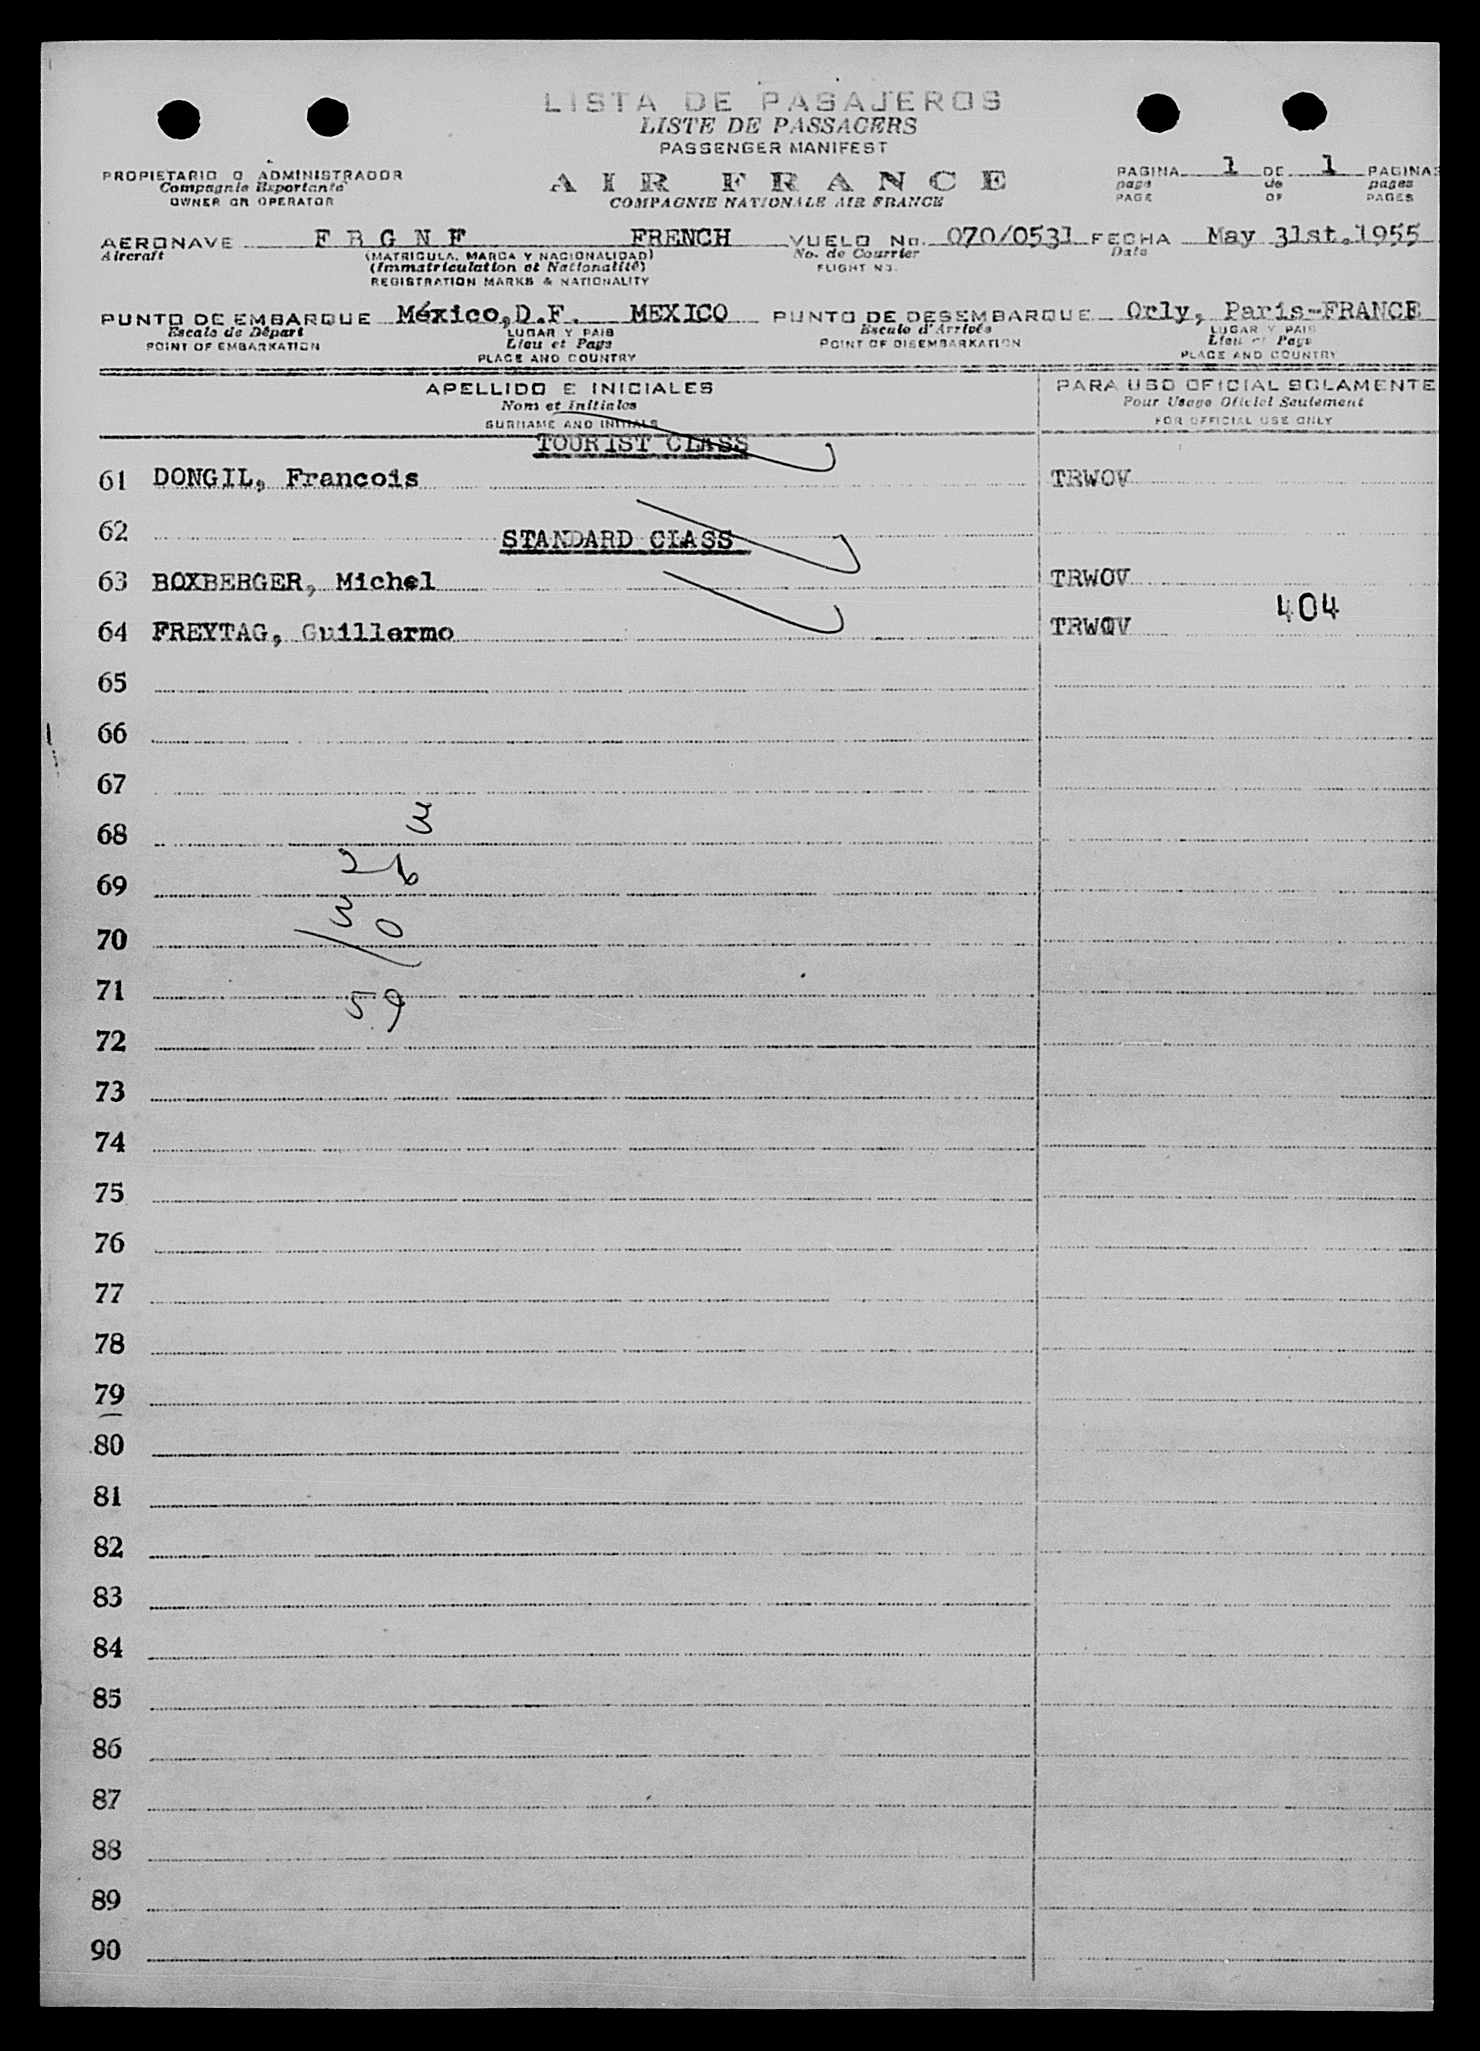 LISTA DE PASAJEROS
LISTE DE PASSAGERS
PASSENGER MANIFEST
PROPIETARIO O ADMINISTRADOR
Compagnie Exportante
OWNER OR OPERATOR
AIR FRANCE
COMPAGNIE NATIONALE AIR FRANCE
PAGINA 1 DE 1 PAGINAS
page de pages
PAGE OF PAGES
AERONAVE F B G N F FRENCH VUELO No. 070/0531 FECHA May 31st.1955
Aircraft (MATRICULA, MARCA Y NACIONALIDAD) No. de Courrier Date
(Immatriculation et Nationalité) FLIGHT NO.
REGISTRATION MARKS & NATIONALITY
PUNTO DE EMBARQUE México,D.F. MEXICO PUNTO DE DESEMBARQUE Orly, Paris-FRANCE
Escale de Départ LUGAR Y PAIS Escale d'Arrivée LUGAR Y PAIS
POINT OF EMBARKATION Lieu et Pays POINT OF DISEMBARKATION Lieu et Pays
PLACE AND COUNTRY PLACE AND COUNTRY
APELLIDO E INICIALES PARA USO OFICIAL SOLAMENTE
Nom et Initiales Pour Usage Officiel Seulement
SURNAME AND INITIALS FOR OFFICIAL USE ONLY
TOURIST CLASS
61 DONGIL, Francois TRWOV
62 STANDARD CLASS
63 BOXBERGER, Michel TRWOV
404
64 FREYTAG, Guillermo TRWOV
65
66
67
68
69
70
71
72
73
74
75
76
77
78
79
80
81
82
83
84
85
86
87
88
89
90